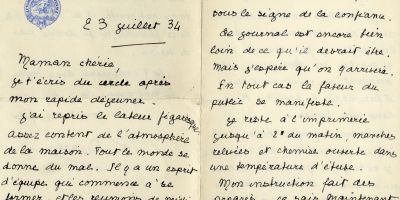 23 juillet 34
Maman chérie,
je t'écris du cercle après
mon rapide déjeuner.
J'ai repris le labeur figaresque
assez content de l'atmosphère
de la maison. Tout le monde se
donne du mal. Il y a un esprit
d'équipe qui commence à se
former, et les réunions de
sous le signe de la confiance.
Ce journal est encore bien
loin de ce qu'il devrait être.
Mais j'espère qu'on y arrivera.
En tout cas la faveur du
public se manifeste.
Je reste à l'imprimerie
jusqu'à 2h du matin, manches
relevées et chemise ouverte dans
une température d'étuve.
Mon instruction fait des
progrès. Je sais maintenant